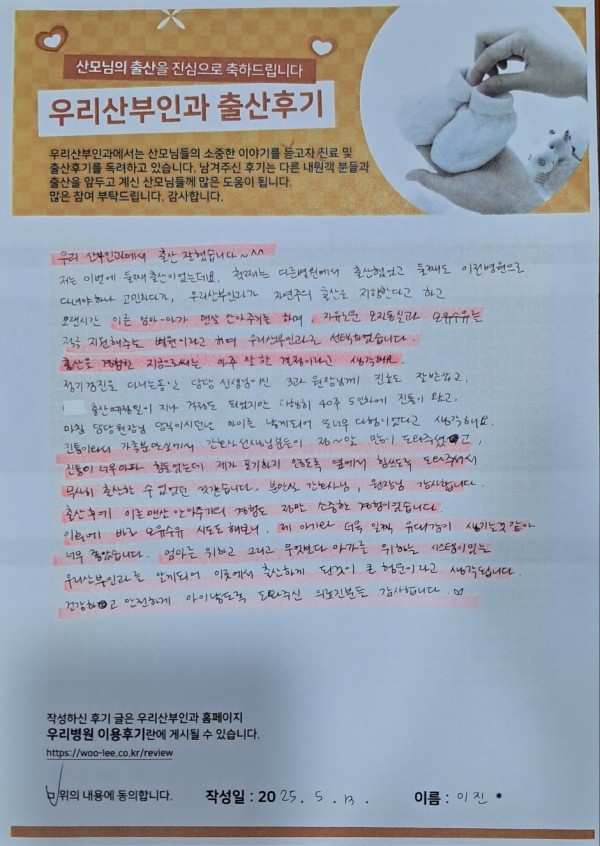 산모님의 출산을 진심으로 축하드립니다
우리산부인과 출산후기
우리산부인과에서는 산모님들의 소중한 이야기를 듣고자 진료 및
출산후기를 독려하고 있습니다. 남겨주신 후기는 다른 내원객 분들과
출산을 앞두고 계신 산모님들께 많은 도움이 됩니다.
많은 참여 부탁드립니다. 감사합니다.
우리 산부인과에서 출산 잘했습니다~^^
저는 이번에 둘째출산이었는데요. 첫째는 다른병원에서 출산했었고 둘째도 이전병원으로
다녀야하나 고민하다가, 우리산부인과가 자연주의 출산을 지향한다고 하고
오랜시간 이른 엄마-아가 맨살 안아주기를 하며, 자유로운 모자동실과 모유수유를
적극 지원해주는 병원이라고 하여 우리산부인과로 선택하였습니다.
출산을 경험한 지금으로써는 아주 잘 한 결정이라고 생각해요.
정기검진을 다니는동안 담당 선생님이신 3과 원장님께 진료도 잘받았고,
출산예정일이 지나 걱정도 되었지만 다행히 40주 5일차에 진통이 왔고,
마침 담당원장님 당직이시던날 아이를 낳게되어 또너무 다행이었다고 생각해요.
진통이와서 가족분만실에서 간호사선생님분들이 정말 많이 도와주셨고,
진통이 너무아파 힘들었는데 제가 포기하지 않도록 옆에서 힘쓰도록 도와주셔서
무사히 출산할 수 있었던 것같습니다. 분만실 간호사님, 원장님 감사합니다.
출산후에 이른맨살 안아주기의 경험도 정말 소중한 경험이었습니다.
이후에 바로 모유수유 시도도 해보니, 제 아기와 더욱 일찍 유대감이 생기는것 같아
너무 좋았습니다. 엄마를 위하고 그리고 무엇보다 아가를 위하는 시스템이있는
우리산부인과를 알게되어 이곳에서 출산하게 된것이 큰 행운이라고 생각됩니다.
건강하고 안전하게 아이낳도록 도와주신 의료진분들 감사합니다. ♡
작성하신 후기 글은 우리산부인과 홈페이지
우리병원 이용후기란에 게시될 수 있습니다.
https://woo-lee.co.kr/review
위의 내용에 동의합니다. 작성일 : 2025. 5. 13. 이름 : 이진 *